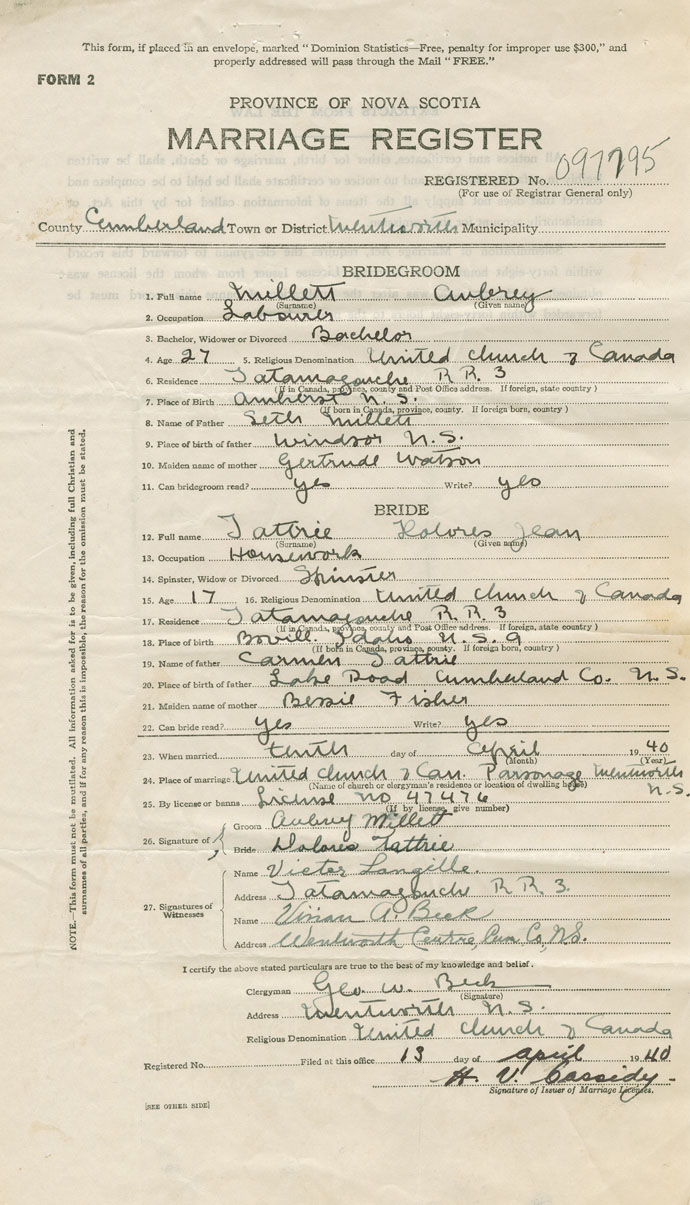 This form, if placed in an envelope, marked "Dominion Statistics—Free, penalty for improper use $300," and
properly addressed will pass through the Mail "FREE."
FORM 2
PROVINCE OF NOVA SCOTIA
MARRIAGE REGISTER
REGISTERED No. 097795
(For use of Registrar General only)
County Cumberland Town or District Wentworth Municipality
BRIDEGROOM
1. Full name Millett Aubrey
(Surname) (Given name)
2. Occupation Labourer
3. Bachelor, Widower or Divorced Bachelor
4. Age 27 5. Religious Denomination United Church of Canada
6. Residence Tatamagouche R R. 3
(If in Canada, province, county and Post Office address. If foreign, state country)
7. Place of Birth Amherst N. S.
(If born in Canada, province, county. If foreign born, country)
8. Name of Father Seth Millett
9. Place of birth of father Windsor N. S.
10. Maiden name of mother Gertrude Watson
11. Can bridegroom read? yes Write? yes
BRIDE
12. Full name Tattrie Dolores Jean
(Surname) (Given name)
13. Occupation Housework
14. Spinster, Widow or Divorced Spinster
15. Age 17 16. Religious Denomination United Church of Canada
17. Residence Tatamagouche R R. 3
(If in Canada, province, county and Post Office address. If foreign, state country)
18. Place of birth Bovill. Idaho U. S. A
(If born in Canada, province, county. If foreign born, country)
19. Name of father Carmen Tattrie
20. Place of birth of father Lake Road Cumberland Co. N. S.
21. Maiden name of mother Bessie Fisher
22. Can bride read? yes Write? yes
23. When married tenth day of April 1940
(Month) (Year)
24. Place of marriage United Church of Can. Parsonage Wentworth
(Name of church or clergyman's residence or location of dwelling house) N.S.
25. By license or banns License no 47476
(If by license, give number)
26. Signature of Groom Aubrey Millett
Bride Dolores Tattrie
27. Signatures of Witnesses
Name Victor Langille.
Address Tatamagouche R R. 3.
Name Vivian A. Beck
Address Wentworth Centre, Cum Co, N.S.
I certify the above stated particulars are true to the best of my knowledge and belief.
Clergyman Geo. W. Beck
(Signature)
Address Wentworth N. S.
Religious Denomination United Church of Canada
Registered No. Filed at this office 13 day of April 1940
H. V. Cassidy
Signature of Issuer of Marriage Licenses.
[SEE OTHER SIDE]
NOTE.—This form must not be mutilated. All information asked for is to be given, including full Christian and
surnames of all parties, and if for any reason this is impossible, the reason for the omission must be stated.